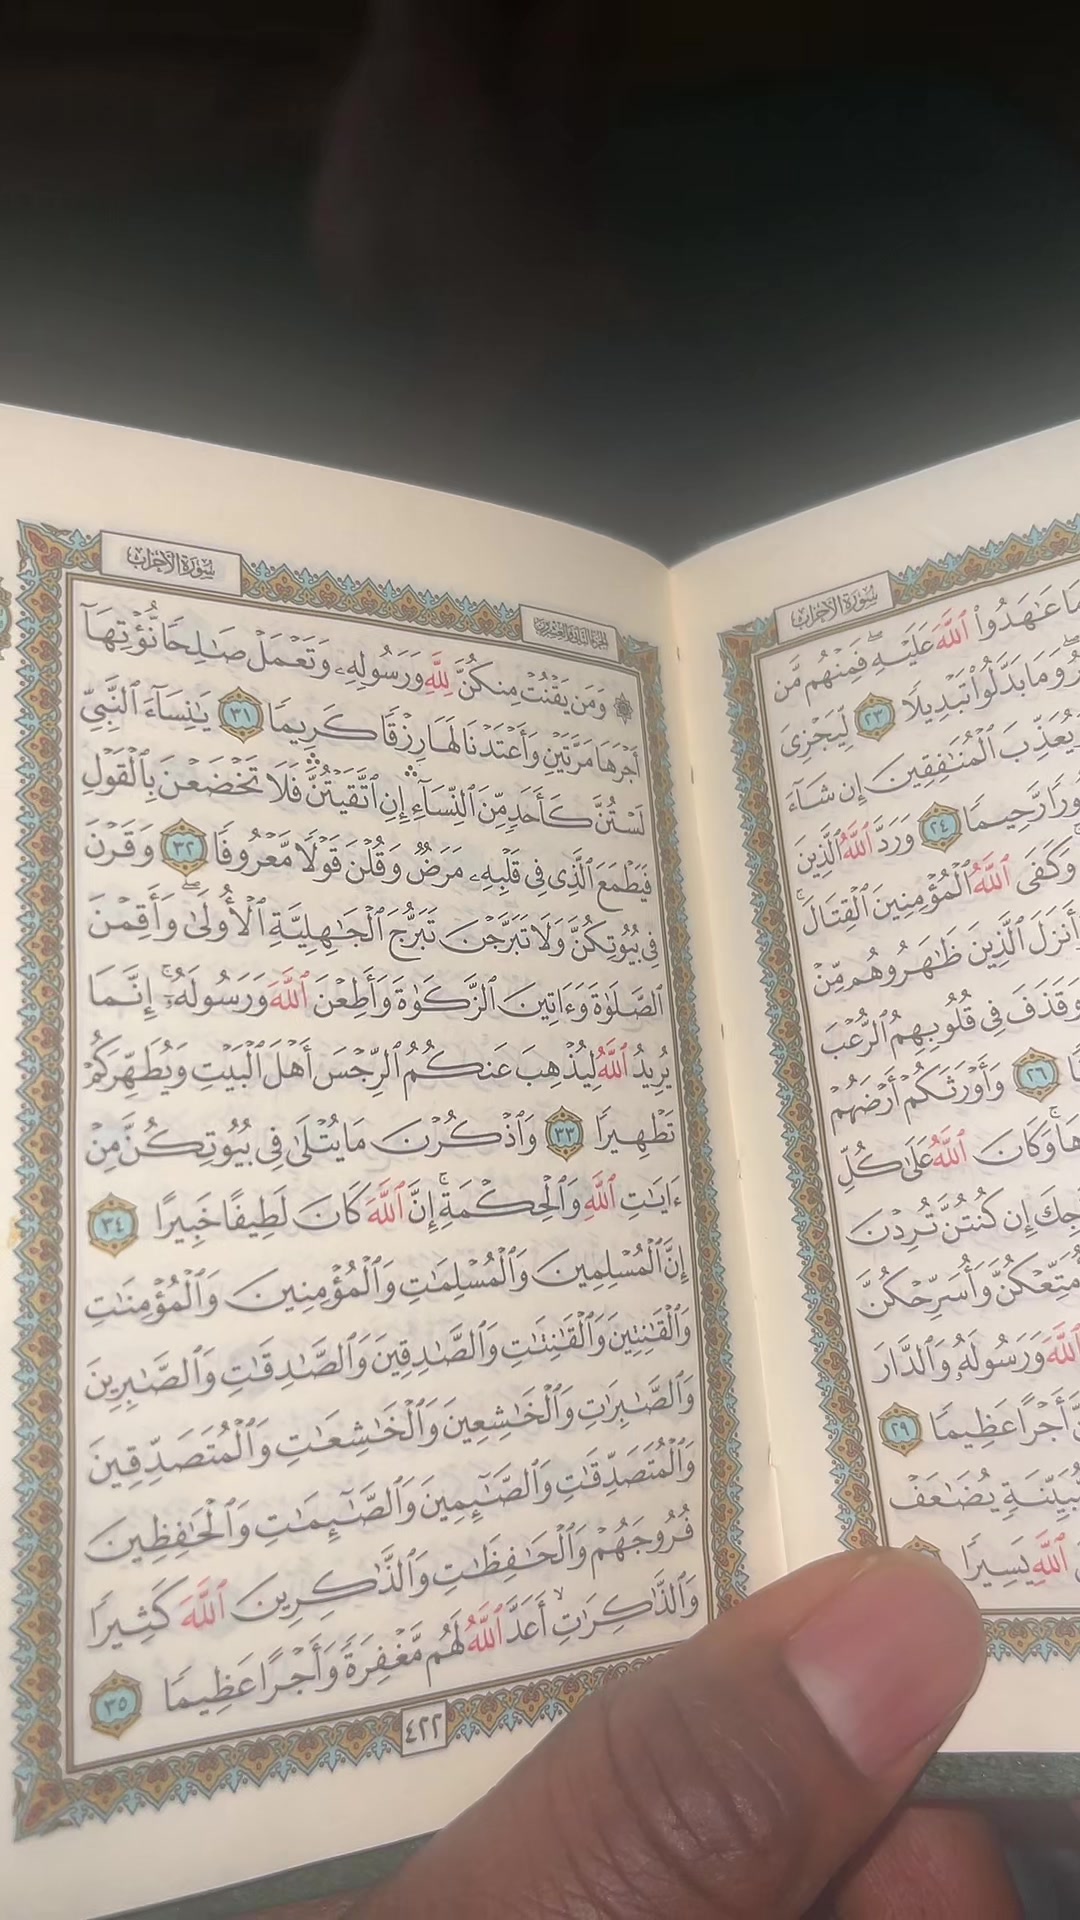 سُورَةُ الأَحْزَابِ
مَا عَٰهَدُوا۟ ٱللَّهَ عَلَيْهِ ۖ فَمِنْهُم مَّن
وَمَا بَدَّلُوا۟ تَبْدِيلًا ٢٣ لِّيَجْزِىَ
يُعَذِّبَ ٱلْمُنَٰفِقِينَ إِن شَآءَ
رَّحِيمًا ٢٤ وَرَدَّ ٱللَّهُ ٱلَّذِينَ
وَكَفَى ٱللَّهُ ٱلْمُؤْمِنِينَ ٱلْقِتَالَ ۚ
أَنزَلَ ٱلَّذِينَ ظَٰهَرُوهُم مِّنْ
وَقَذَفَ فِى قُلُوبِهِمُ ٱلرُّعْبَ
٢٦ وَأَوْرَثَكُمْ أَرْضَهُمْ
وَكَانَ ٱللَّهُ عَلَىٰ كُلِّ
إِن كُنتُنَّ تُرِدْنَ
أُمَتِّعْكُنَّ وَأُسَرِّحْكُنَّ
ٱللَّهَ وَرَسُولَهُۥ وَٱلدَّارَ
أَجْرًا عَظِيمًا ٢٩
مُّبَيِّنَةٍ يُضَٰعَفْ
ٱللَّهِ يَسِيرًا
الجُزْءُ الثَّانِي وَالعِشْرُونَ
سُورَةُ الأَحْزَابِ
۞ وَمَن يَقْنُتْ مِنكُنَّ لِلَّهِ وَرَسُولِهِۦ وَتَعْمَلْ صَٰلِحًا نُّؤْتِهَآ
أَجْرَهَا مَرَّتَيْنِ وَأَعْتَدْنَا لَهَا رِزْقًا كَرِيمًا ٣١ يَٰنِسَآءَ ٱلنَّبِىِّ
لَسْتُنَّ كَأَحَدٍ مِّنَ ٱلنِّسَآءِ ۛ إِنِ ٱتَّقَيْتُنَّ ۛ فَلَا تَخْضَعْنَ بِٱلْقَوْلِ
فَيَطْمَعَ ٱلَّذِى فِى قَلْبِهِۦ مَرَضٌ وَقُلْنَ قَوْلًا مَّعْرُوفًا ٣٢ وَقَرْنَ
فِى بُيُوتِكُنَّ وَلَا تَبَرَّجْنَ تَبَرُّجَ ٱلْجَٰهِلِيَّةِ ٱلْأُولَىٰ ۖ وَأَقِمْنَ
ٱلصَّلَوٰةَ وَءَاتِينَ ٱلزَّكَوٰةَ وَأَطِعْنَ ٱللَّهَ وَرَسُولَهُۥٓ ۚ إِنَّمَا
يُرِيدُ ٱللَّهُ لِيُذْهِبَ عَنكُمُ ٱلرِّجْسَ أَهْلَ ٱلْبَيْتِ وَيُطَهِّرَكُمْ
تَطْهِيرًا ٣٣ وَٱذْكُرْنَ مَا يُتْلَىٰ فِى بُيُوتِكُنَّ مِنْ
ءَايَٰتِ ٱللَّهِ وَٱلْحِكْمَةِ ۚ إِنَّ ٱللَّهَ كَانَ لَطِيفًا خَبِيرًا ٣٤
إِنَّ ٱلْمُسْلِمِينَ وَٱلْمُسْلِمَٰتِ وَٱلْمُؤْمِنِينَ وَٱلْمُؤْمِنَٰتِ
وَٱلْقَٰنِتِينَ وَٱلْقَٰنِتَٰتِ وَٱلصَّٰدِقِينَ وَٱلصَّٰدِقَٰتِ وَٱلصَّٰبِرِينَ
وَٱلصَّٰبِرَٰتِ وَٱلْخَٰشِعِينَ وَٱلْخَٰشِعَٰتِ وَٱلْمُتَصَدِّقِينَ
وَٱلْمُتَصَدِّقَٰتِ وَٱلصَّٰٓئِمِينَ وَٱلصَّٰٓئِمَٰتِ وَٱلْحَٰفِظِينَ
فُرُوجَهُمْ وَٱلْحَٰفِظَٰتِ وَٱلذَّٰكِرِينَ ٱللَّهَ كَثِيرًا
وَٱلذَّٰكِرَٰتِ أَعَدَّ ٱللَّهُ لَهُم مَّغْفِرَةً وَأَجْرًا عَظِيمًا ٣٥
٤٢٢